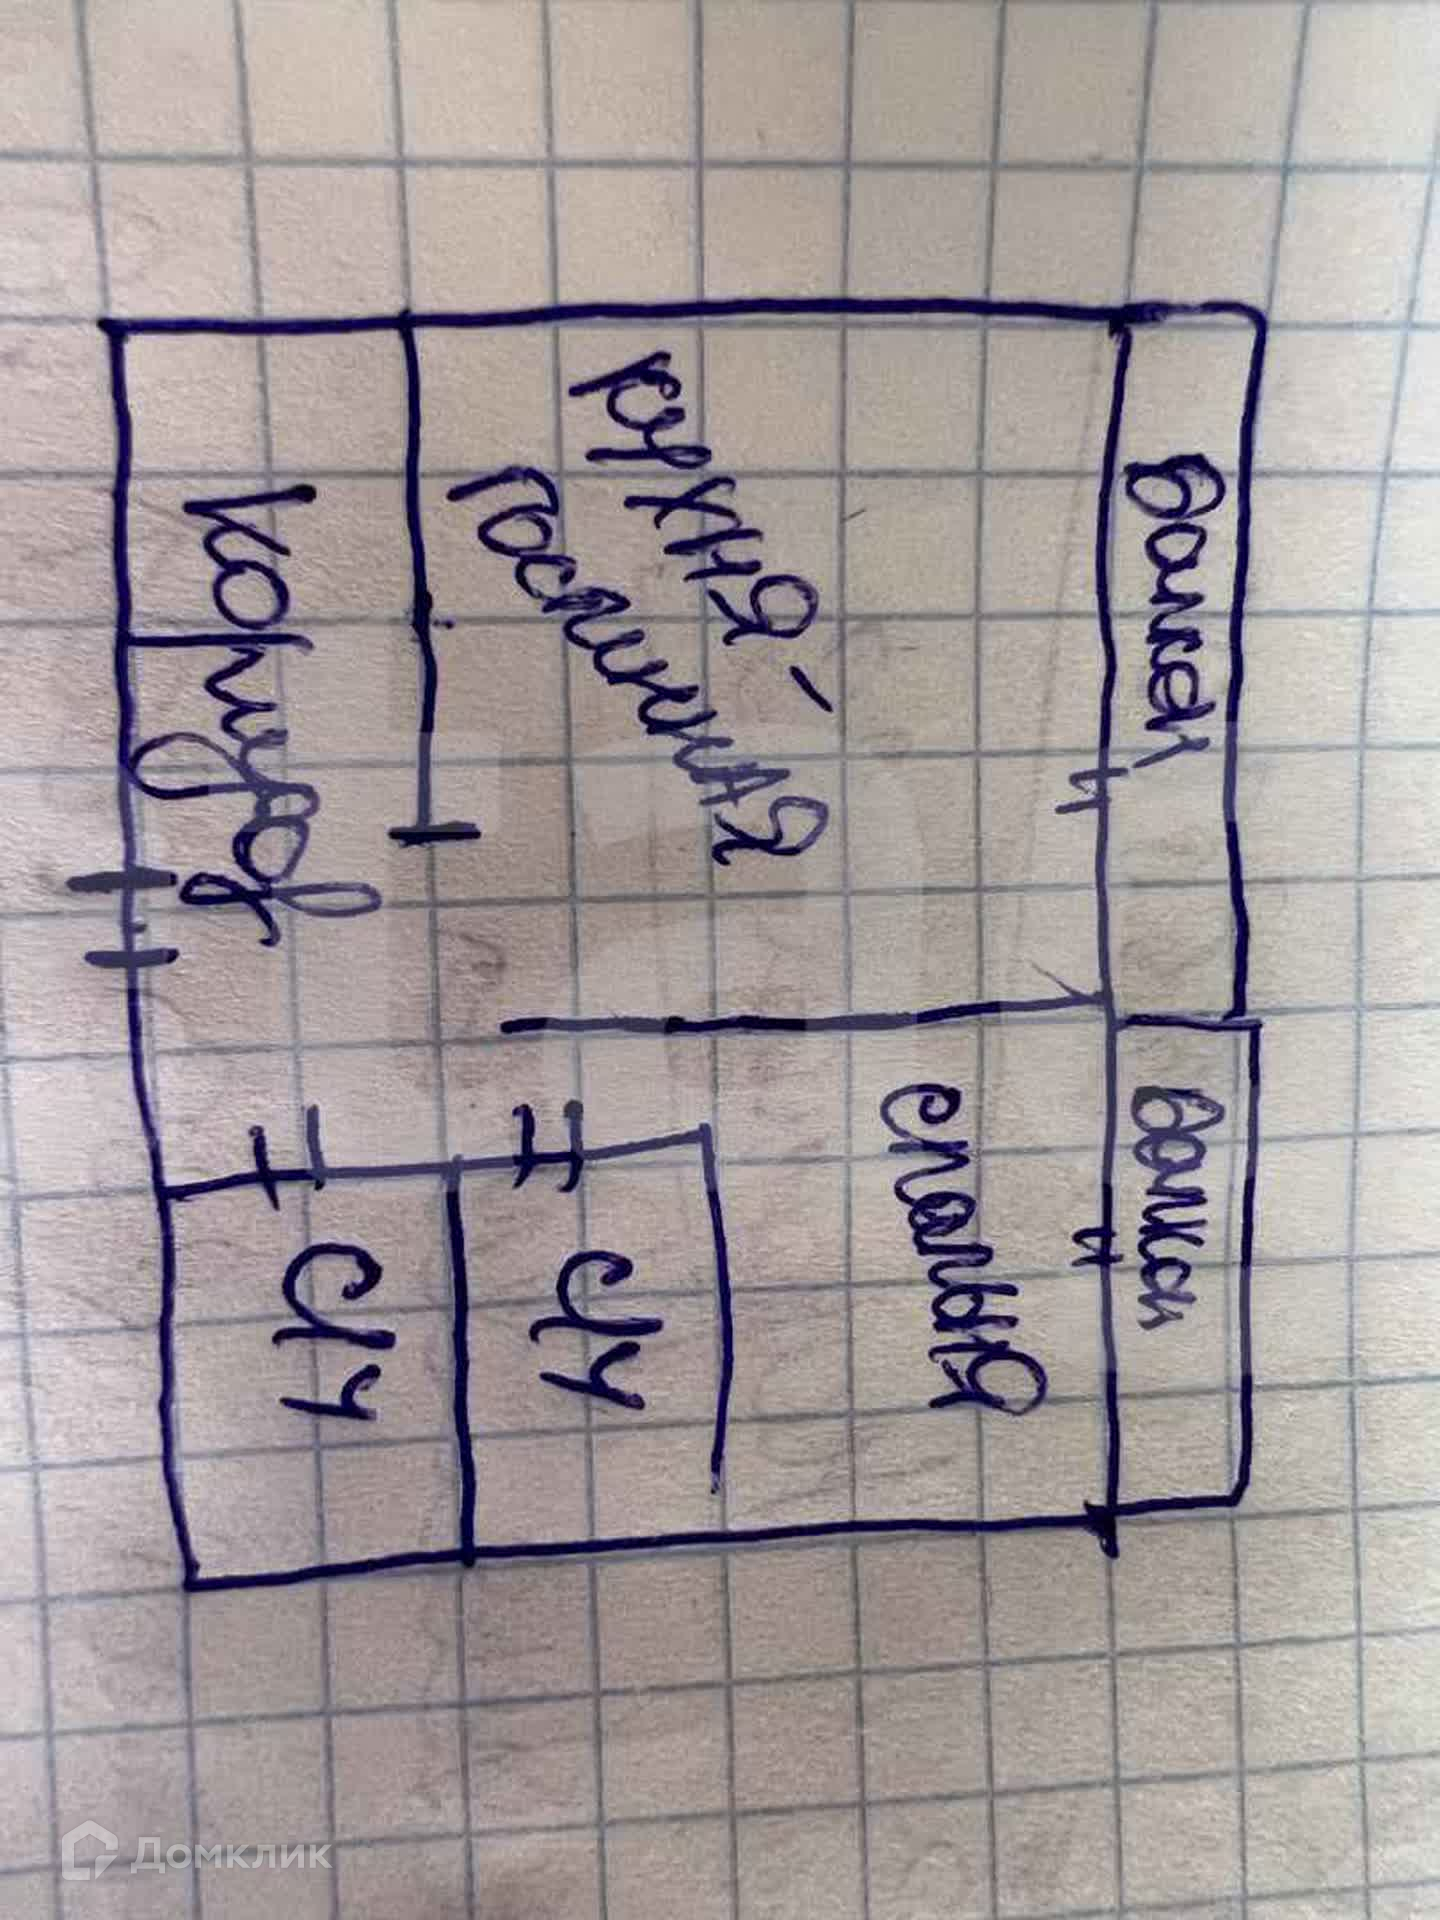 Балкон
Балкон
кухня-
гостиная
спальня
Коридор
С/у
С/у
Домклик